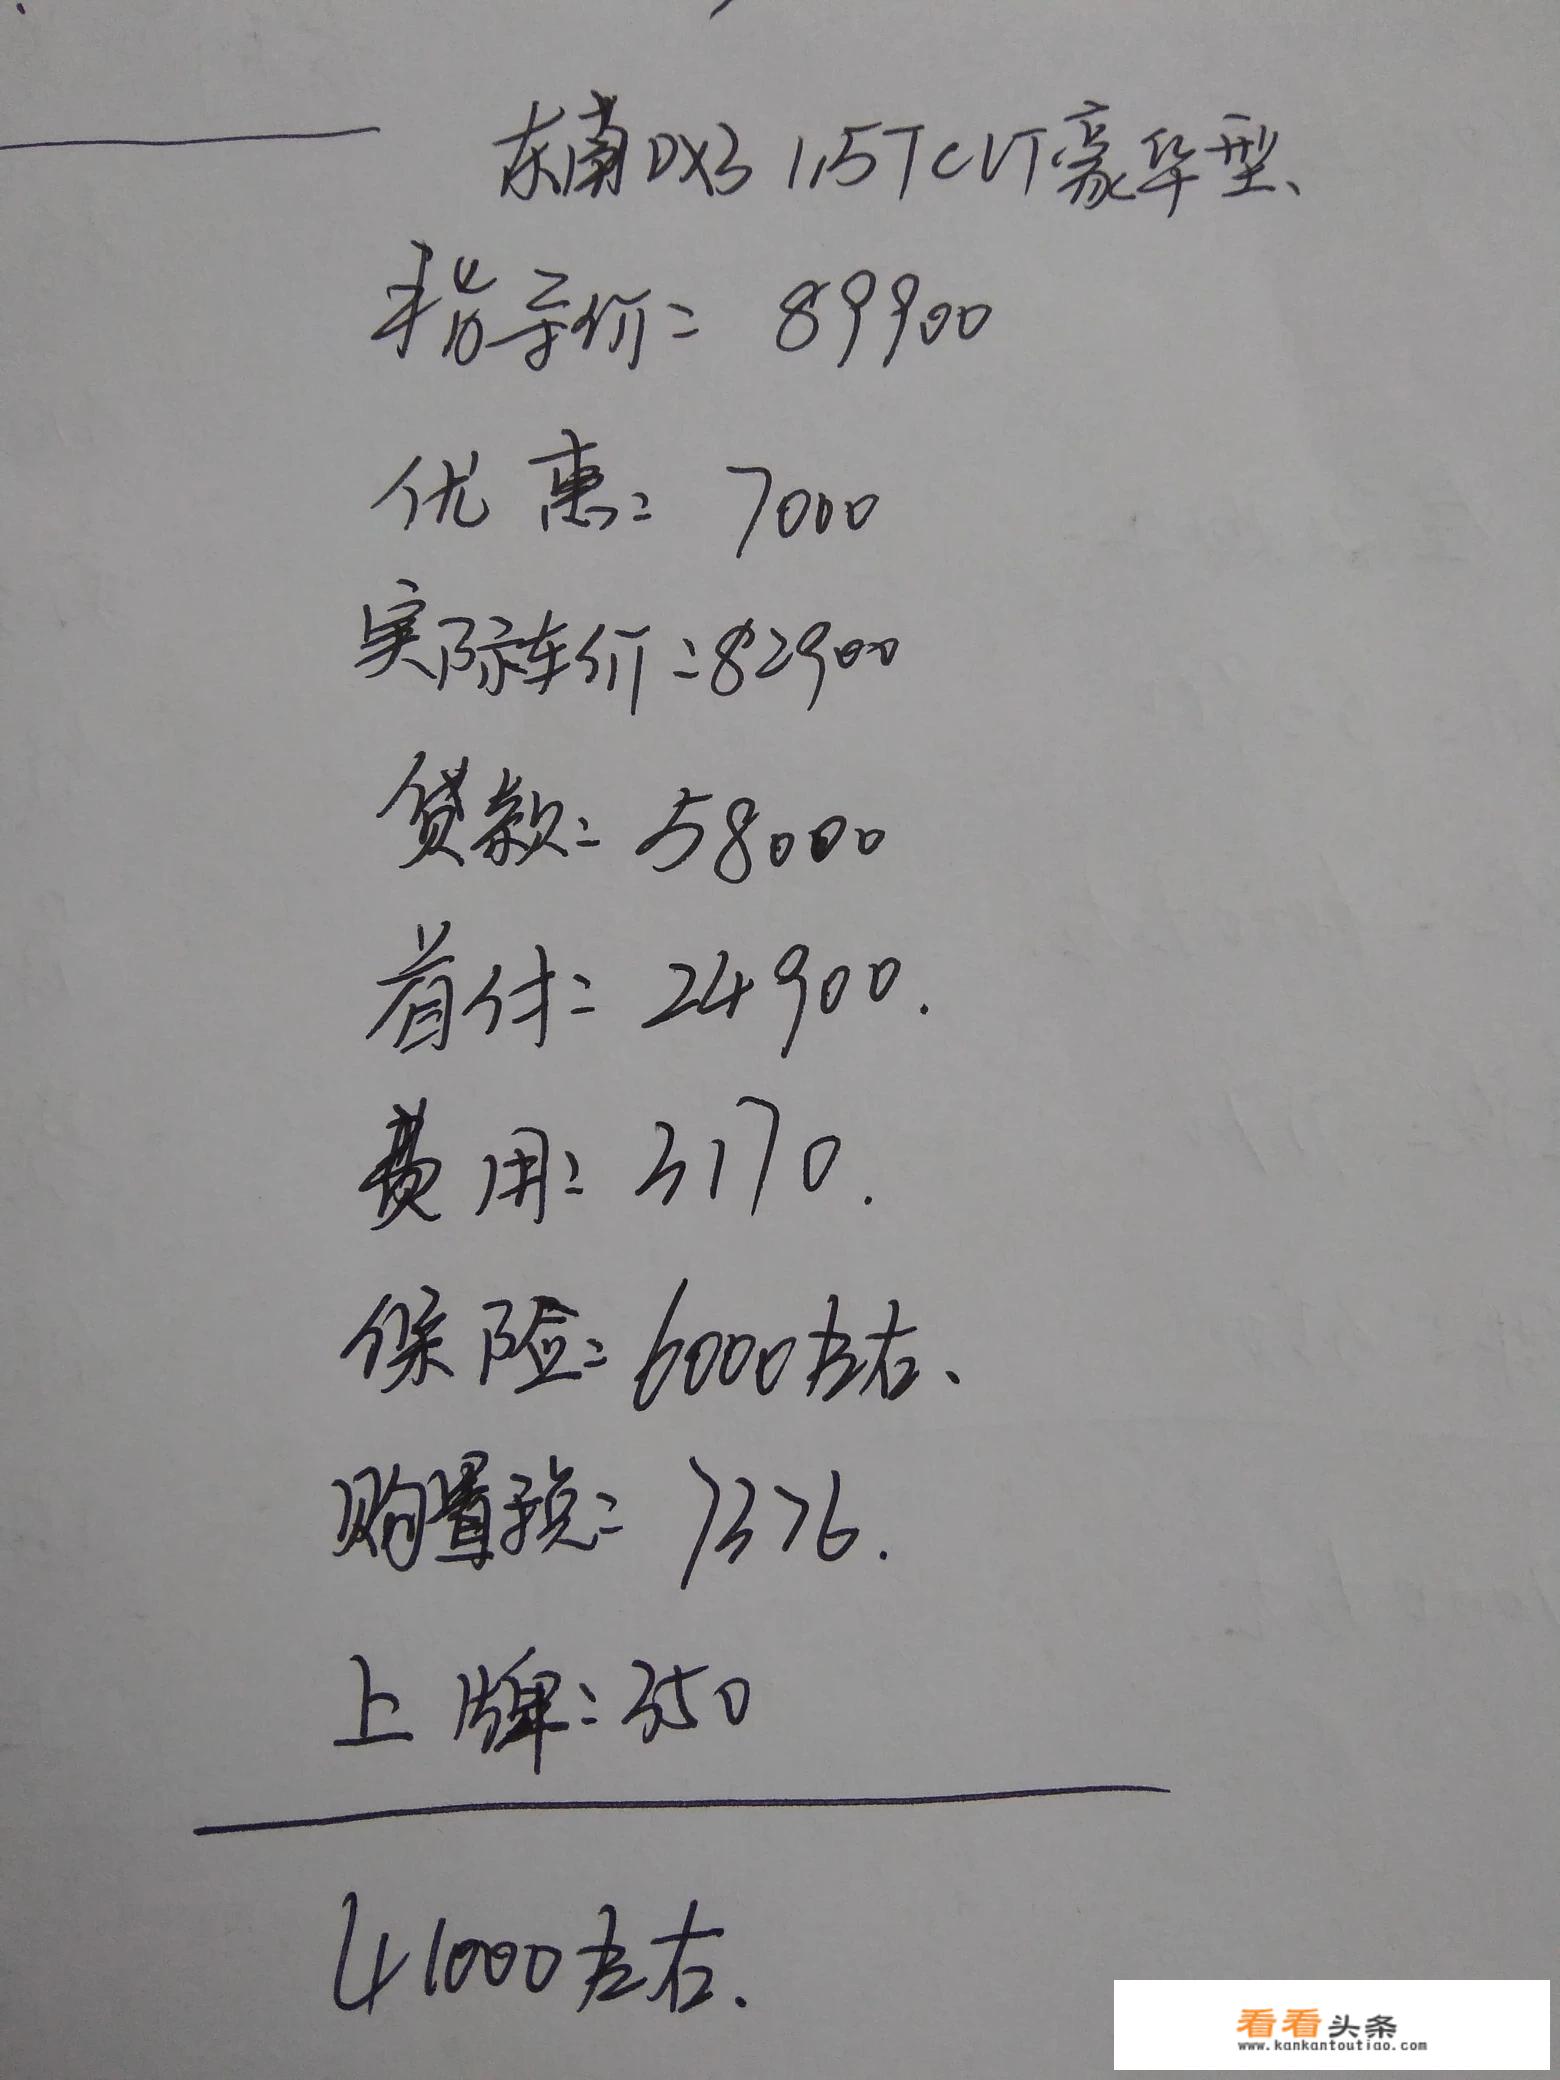 东南DX3 1.5T CVT豪华型、
指导价: 89900
优惠: 7000
实际车价:82900
贷款: 58000
首付: 24900.
费用: 3170.
保险: 6000左右、
购置税: 7376.
上牌:350
41000左右.
看看头条
www.kankantoutiao.com